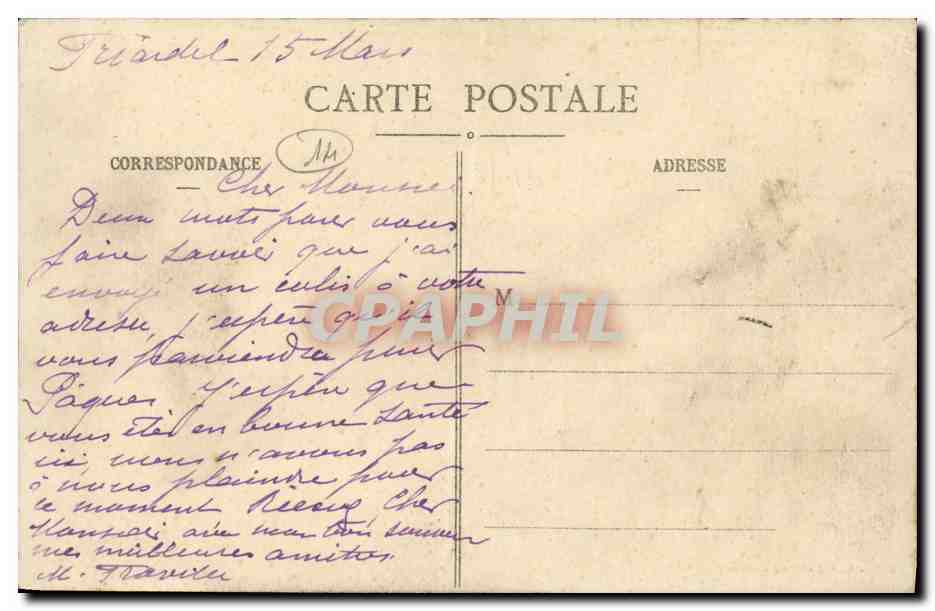 15 Mars
CARTE POSTALE
CORRESPONDANCE
ADRESSE
Cher Monsieur
Deux mots pour vous
faire savoir que j'ai
envoyé un colis à votre
adresse, j'espère qu'il
vous parviendra pour
Pâques J'espère que
vous êtes en bonne santé
ici, nous n'avons pas
à nous plaindre pour
ce moment Recevez Cher
Monsieur avec mon bon souvenir
mes meilleures amitiés
M.
M
CPAPHIL